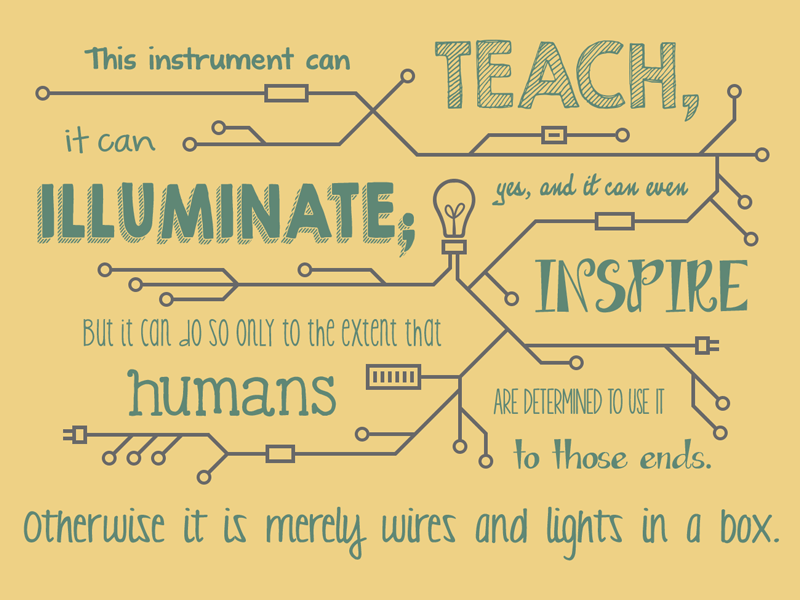 This instrument can
TEACH,
it can
ILLUMINATE;
yes, and it can even
INSPIRE
But it can do so only to the extent that
humans
ARE DETERMINED TO USE IT
to those ends.
Otherwise it is merely wires and lights in a box.